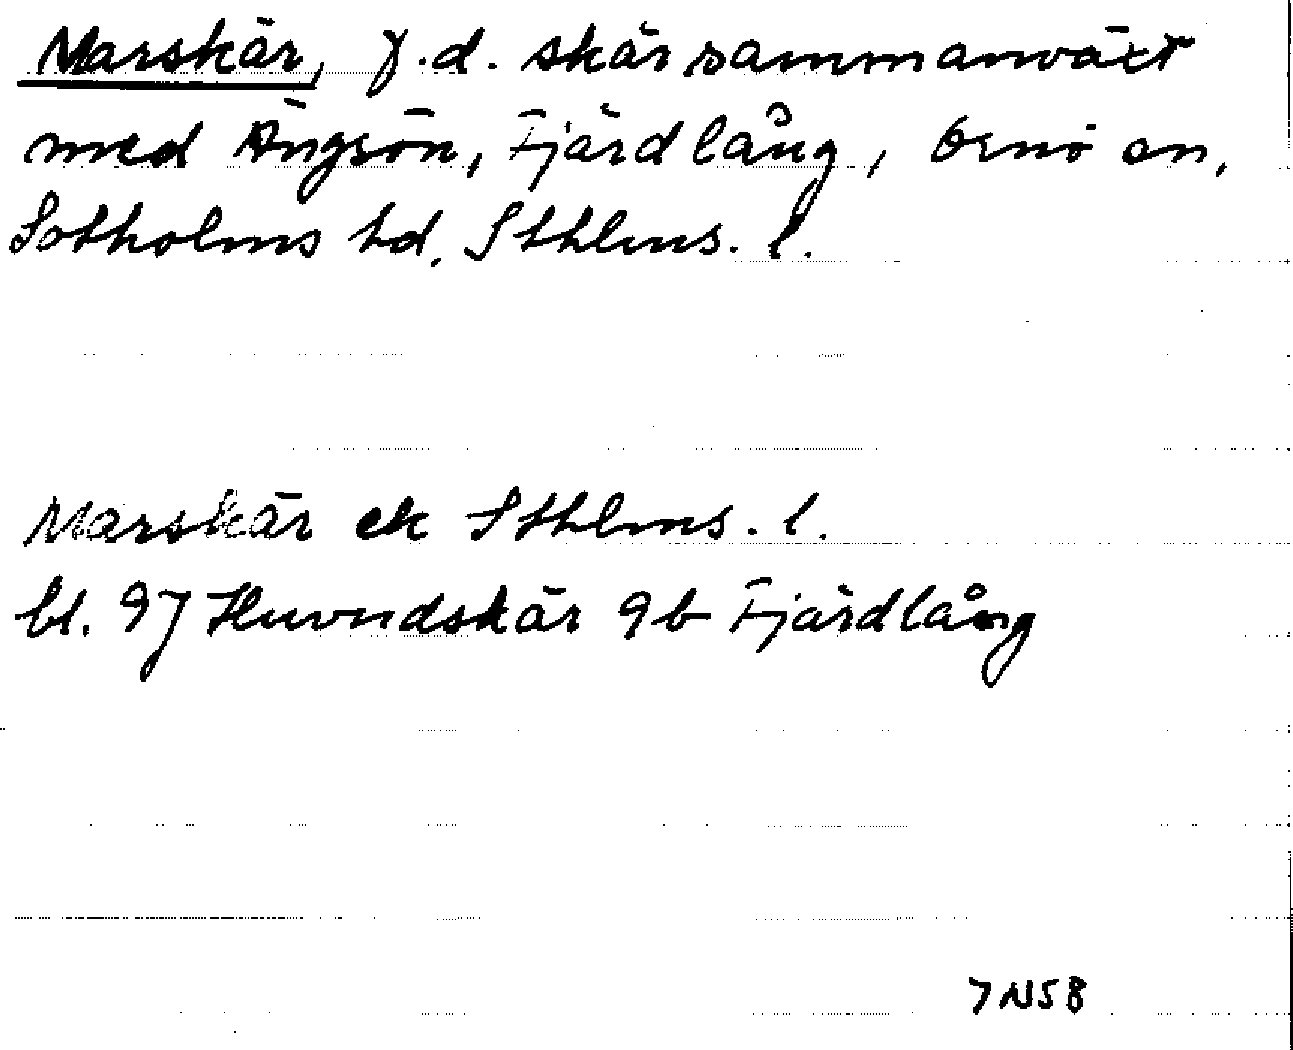 Marskär, f.d. skär sammanväxt
med Ängsön, Fjärdlång, Ornö sn,
Sotholms hd, Sthlms. l.
Marskär ek Sthlms. l.
bl. 97 Huvudskär 9b Fjärdlång
7N58